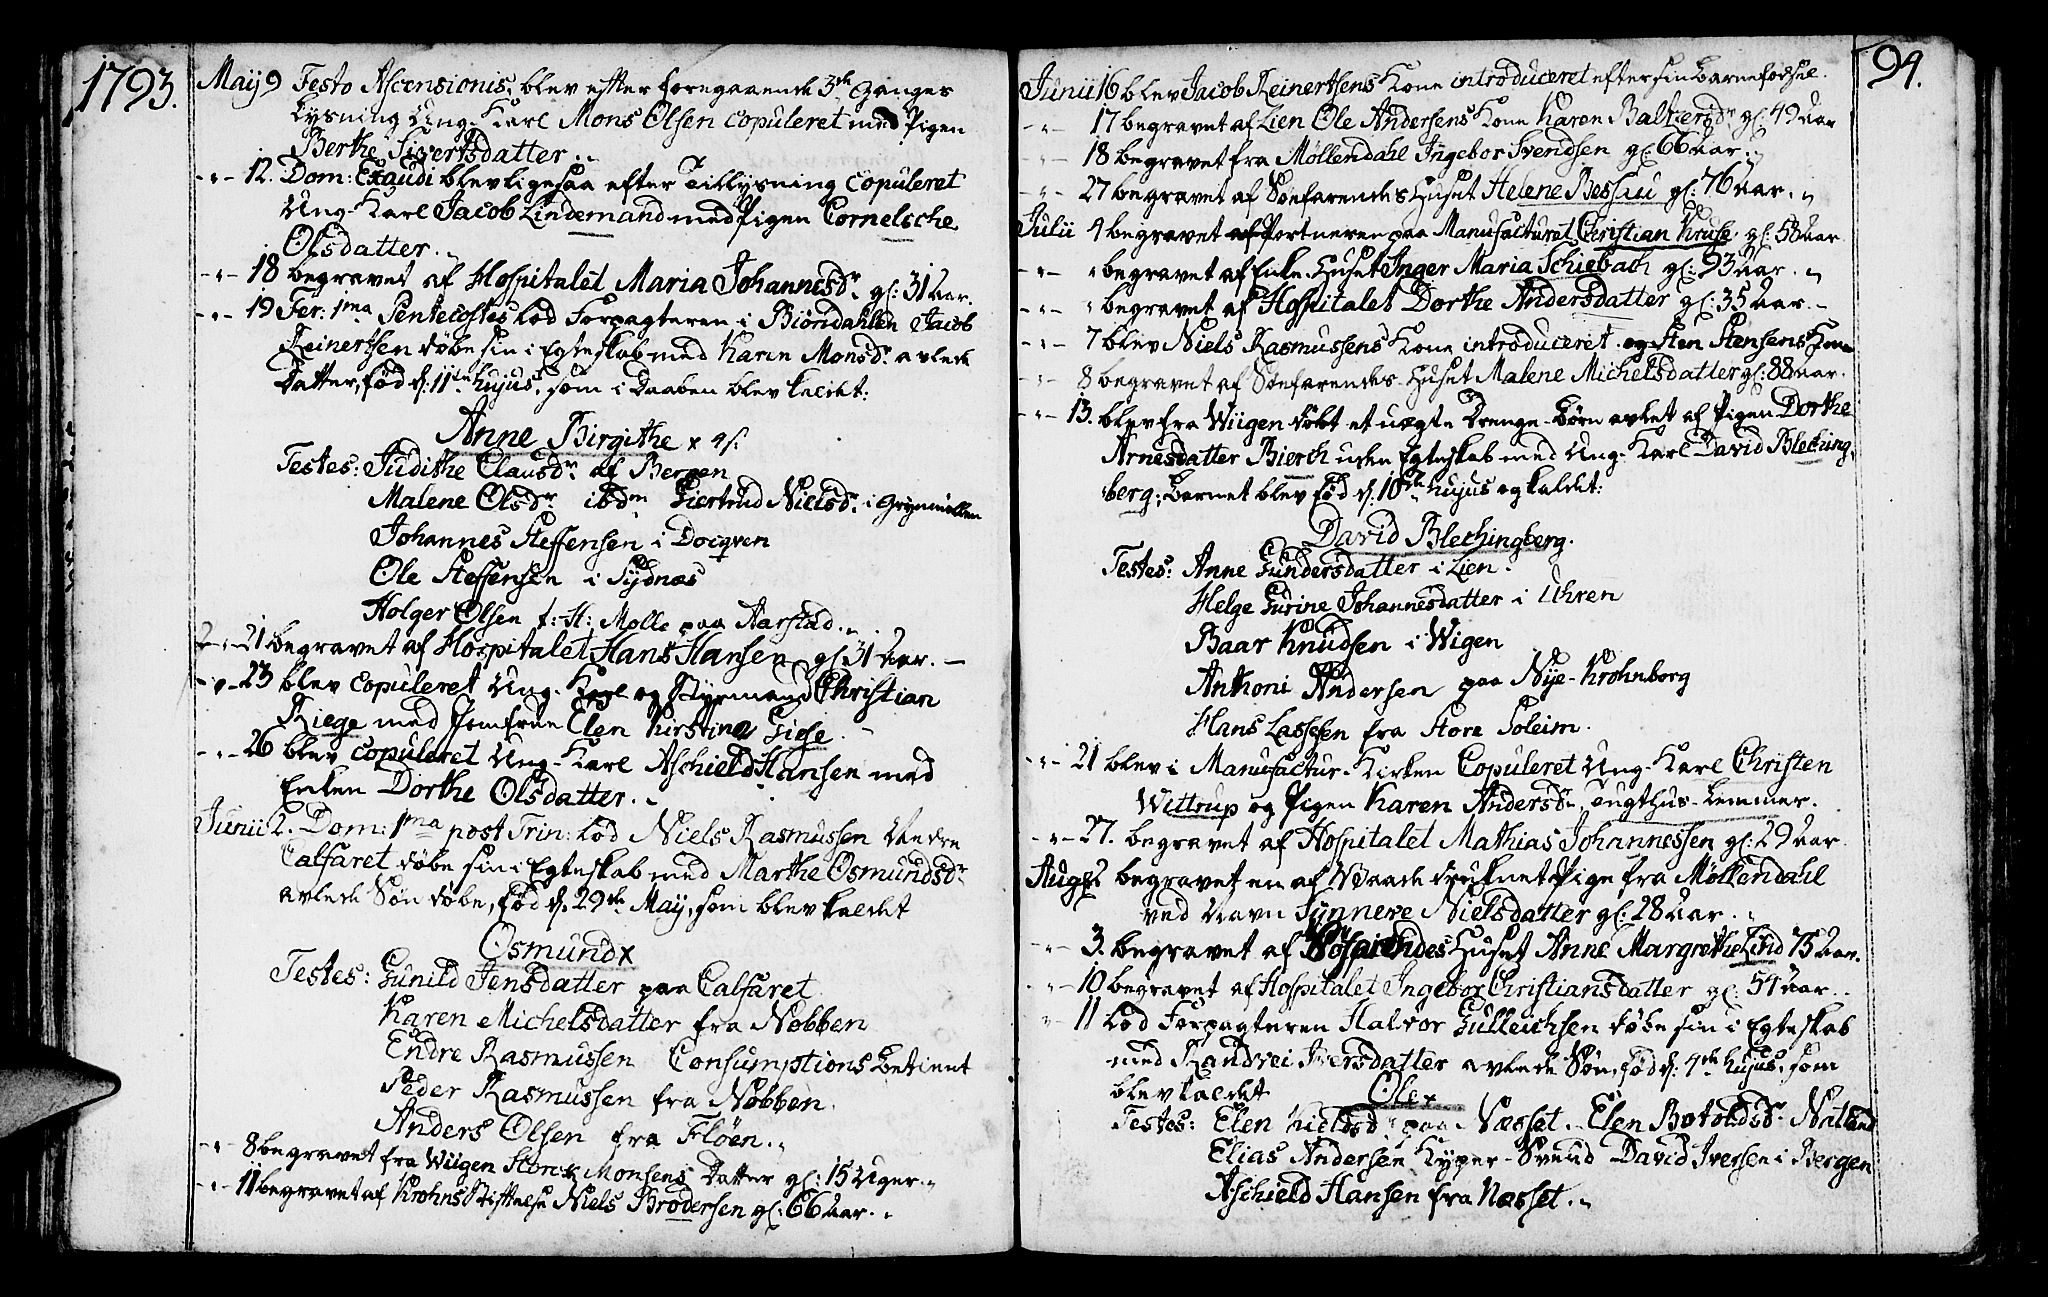 1793.
May 9 Festo Ascensionis, blev efter foregaaende 3de Ganges
Lysning Ung-Karl Mons Olsen copuleret med Pigen
Berthe Sivertsdatter.
-"- 12. Dom: Exaudi blev ligesaa efter Tillysning copuleret
Ung-Karl Jacob Lindemand med Pigen Cornelsche
Olsdatter.
-"- 18 begravet af Hospitalet Maria Johannesdr. gl: 31 Aar.
-"- 19 Fer: 1ma Pentecostes lod Forpagteren i Biörndahlen Jacob
Reinertsen döbe sin i Egteskab med Karin Monsdr. avlede
Datter, föd d. 11te hujus, som i Daaben blev kaldet:
Anne Birgithe x
Testes: Judithe Clausdr. af Bergen
Malene Olsdr. ibdm Giertrud Nielsdr. i Grynmöllen
Johannes Steffensen i Docqven
Ole Steffensen i Sydnæs
Holger Olsen t: H: Mölle paa Aarstad.
-"- 21 begravet af Hospitalet Hans Hansen gl: 31 Aar.
-"- 23 blev copuleret Ung-Karl og Styrmand Christian
Riege med Jomfrue Elen Kirstina Giese.
-"- 26 blev copuleret Ung-Karl Aschield Hansen med
Enken Dorthe Olsdatter.
Junii 2. Dom: 1ma post Trin: lod Niels Rasmussen Under
Calfaret döbe sin i Egteskab med Marthe Osmundsdr.
avlede Sön döbe, föd d. 29de May, som blev kaldet
Osmund x
Testes: Gunild Jensdatter paa Calfaret.
Karen Michelsdatter fra Nobben
Endre Rasmussen Consumptions Betient
Peder Rasmussen fra Nöbben.
Anders Olsen fra Flöen.
-"- 8 begravet fra Wiigen Monsens Datter gl: 15 Uger.
-"- 11 begravet af Krohns Stiftelse Niels Brodersen gl: 66 Aar.
94.
Junii 16 blev Jacob Reinertsens Kone introduceret efter sin Barnefödsel.
-"- 17 begravet af Lien Ole Andersens Kone Karen Baltzersdr. gl: 49 Aar
-"- 18 begravet fra Möllendahl Ingebor Svendsen gl: 66 Aar.
-"- 27 begravet af Söefarendes Huset Helene Bessau gl: 76 Aar.
Julii 4 begravet af Portneren paa Manufacturet Christian Kruse gl: 58 Aar
-"- " begravet af Enke-Huset Inger Maria Schiebach gl: 93 Aar.
-"- " begravet af Hospitalet Dorthe Andersdatter gl: 35 Aar.
-"- 7 blev Niels Rasmussens Kone introduceret og Sten Stensens Kone
-"- 8 begravet af Söefarendes-Huset Malene Michelsdatter gl: 88 Aar.
-"- 13. blev fra Wiigen döbt et uægte Drenge-Børn avlet af Pigen Dorthe
Arnesdatter Bierch uden Egteskab med Ung-Karl David Bleching-
berg; Barnet blev föd d. 10de hujus og kaldet:
David Blechingberg.
Testes: Anne Gundersdatter i Lien.
Helge Gurine Johannesdatter i Uhren
Baar Knudsen i Wigen
Anthoni Andersen paa Nye-Krohnborg
Hans Lassesen fra Store Soleim.
-"- 21 blev i Manufactur-Kirken Copuleret Ung-Karl Christen
Wittrup og Pigen Karen Andersdr. Tugthus-Lemmer.
-"- 27. begravet af Hospitalet Mathias Johannessen gl: 29 Aar.
begravet en af Vaade druknet Pige fra Möllendahl
ved Navn Synneve Nielsdatter gl: 28 Aar.
-"- 3. begravet af Huset Anne Margrethe Lind 75 Aar.
-"- 10 begravet af Hospitalet Ingebor Christiansdatter gl: 54 Aar.
-"- 11 lod Forpagteren Halvor Gulleichsen döbe sin i Egteskab
med Randvei Iversdatter avlede Sön, föd d: 4de hujus, som
blev kaldet
Ole x
Testes: Elen Nielsdr. paa Næsset. Elen Botoldsdr. Natland
Elias Andersen Kyper-Svend David Iversen i Bergen
Aschield Hansen fra Næsset.